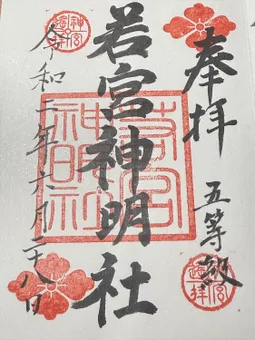 奉拝
五等級
若宮神明社
若宮神明社
令和二年六月二十八日
遥拝